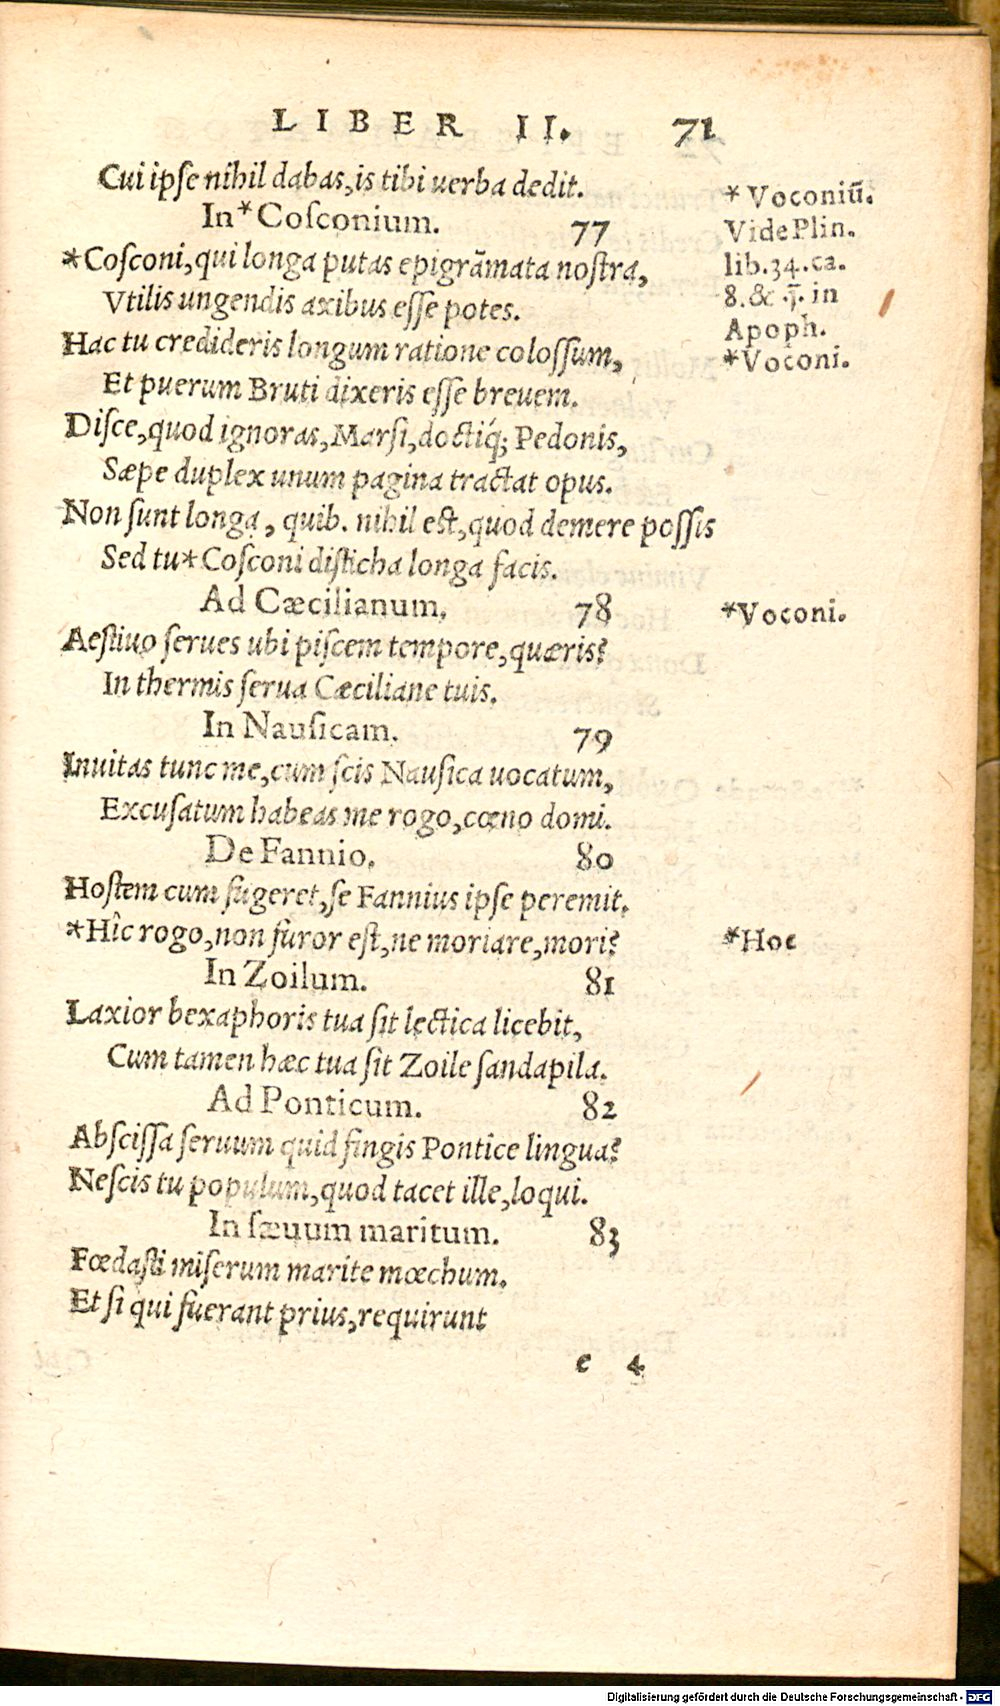 LIBER II. 71
Cui ipſe nihil dabas,is tibi uerba dedit.
In *Coſconium. 77
*Coſconi,qui longa putas epigrāmata noſtra,
Vtilis ungendis axibus eſſe potes.
Hac tu credideris longum ratione coloſſum,
Et puerum Bruti dixeris eſſe breuem.
Diſce,quod ignoras,Marſi,doctiq́; Pedonis,
Sæpe duplex unum pagina tractat opus.
Non ſunt longa, quib. nihil eſt,quod demere poſſis
Sed tu*Coſconi diſticha longa facis.
Ad Cæcilianum. 78
Aeſtiuo ſerues ubi piſcem tempore,quæris?
In thermis ſerua Cæciliane tuis.
In Nauſicam. 79
Inuitas tunc me,cum ſcis Nauſica uocatum,
Excuſatum habeas me rogo,cœno domi.
De Fannio. 80
Hoſtem cum fugeret,ſe Fannius ipſe peremit.
*Hîc rogo,non furor eſt,ne moriare,mori?
In Zoilum. 81
Laxior hexaphoris tua ſit lectica licebit,
Cum tamen hæc tua ſit Zoile ſandapila.
Ad Ponticum. 82
Abſciſſa ſeruum quid fingis Pontice lingua?
Neſcis tu populum,quod tacet ille,loqui.
In ſæuum maritum. 83
Fœdaſti miſerum marite mœchum.
Et ſi qui fuerant prius,requirunt
e 4
*Voconiū.
Vide Plin.
lib.34.ca.
8.& .q̄. in
Apoph.
*Voconi.
*Voconi.
*Hoc
Digitalisierung gefördert durch die Deutsche Forschungsgemeinschaft - DFG